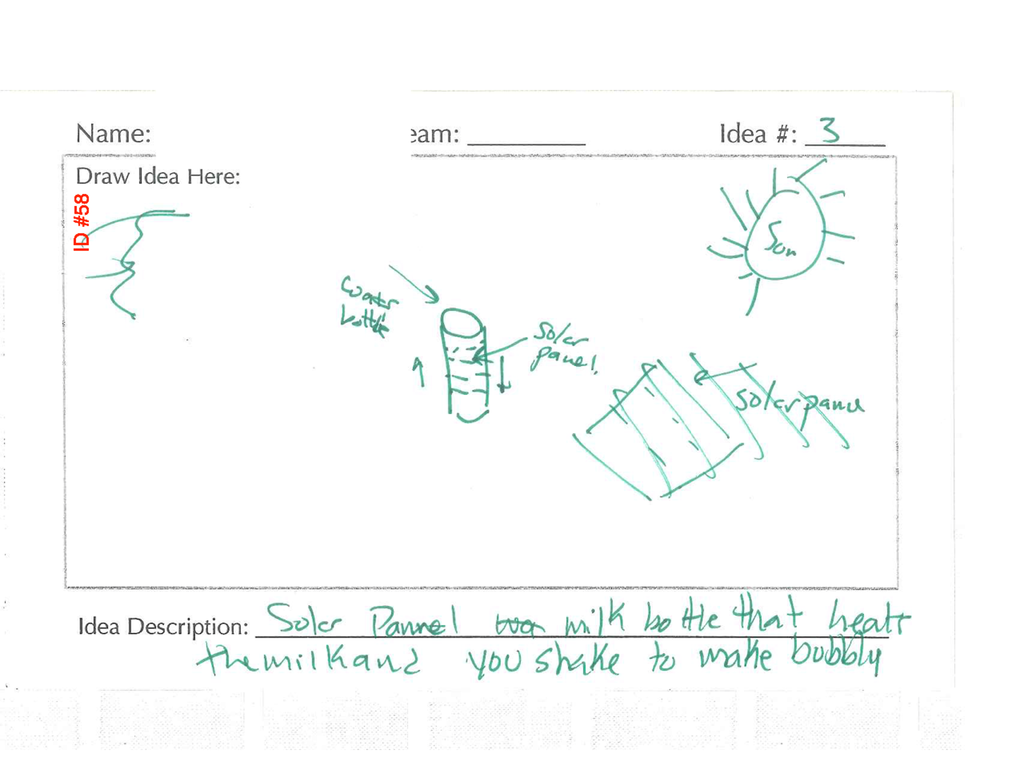 Name:
eam:
Idea #: 3
Draw Idea Here:
ID #58
Sun
water
bottle
solar
panel.
solar panel
Idea Description: Solar Pannel milk bottle that heats
the milk and you shake to make bubbly